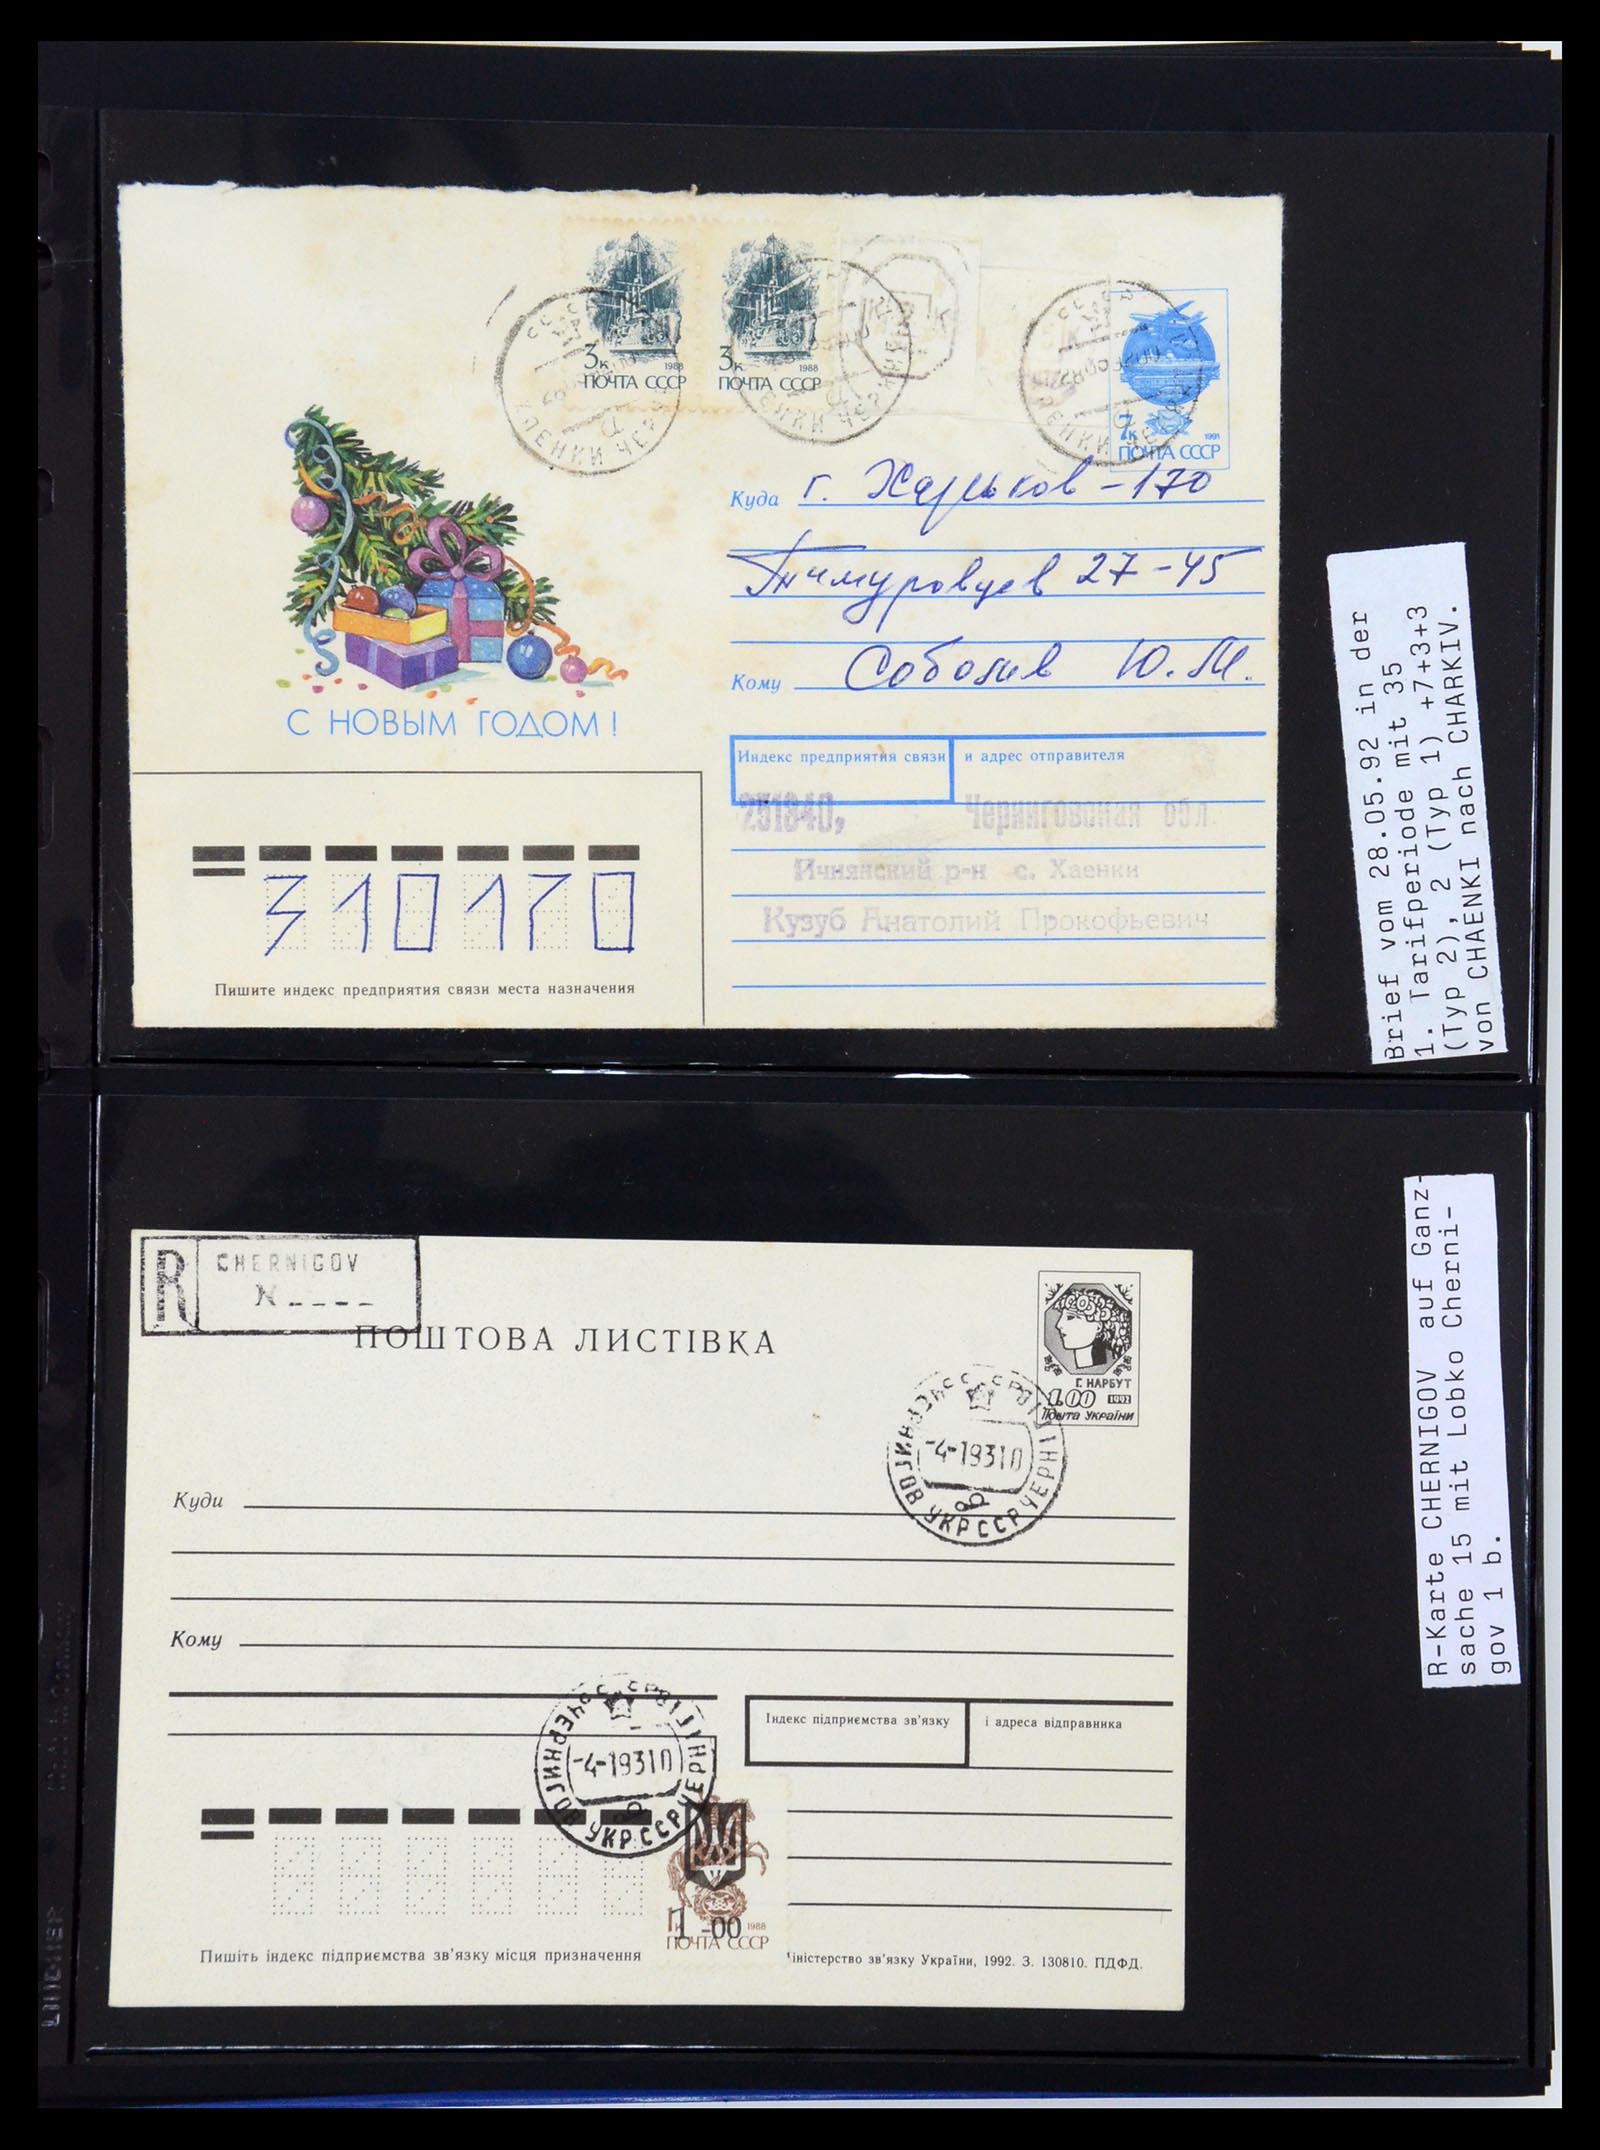 3к 1988
ПОЧТА СССР
3к 1988
ПОЧТА СССР
7к 1991
ПОЧТА СССР
Куда г. Харьков-170
Тимуровцев 27-45
Кому Соболев Ю.М.
С НОВЫМ ГОДОМ!
Индекс предприятия связи и адрес отправителя
251840, Черниговская обл.
Ичнянский р-н с. Хаенки
Кузуб Анатолий Прокофьевич
310170
Пишите индекс предприятия связи места назначения
Brief vom 28.05.92 in der
1. Tarifperiode mit 35
(Typ 2), 2 (Typ 1) +7+3+3
von CHAENKI nach CHARKIV.
R CHERNIGOV
N
ПОШТОВА ЛИСТІВКА
Г. НАРБУТ
1.00 1992
Пошта України
-4-19310
УКР ССР ЧЕРНІГІВ
Куди
Кому
-4-19310
УКР ССР ЧЕРНІГІВ
Індекс підприємства зв'язку і адреса відправника
1-00 1988
ПОЧТА СССР
Пишіть індекс підприємства зв'язку місця призначення
Міністерство зв'язку України, 1992. З. 130810. ПДФД.
R-Karte CHERNIGOV auf Ganz-
sache 15 mit Lobko Cherni-
gov 1 b.